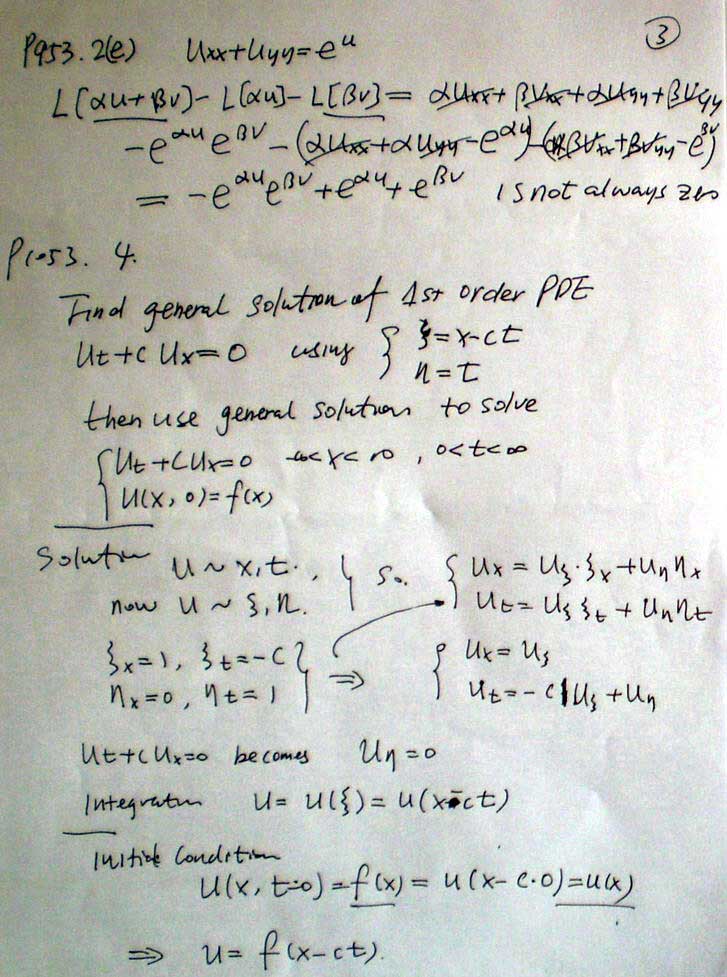 ③
P953. 2(e) Uxx+Uyy=e^u
L[αu+βv]-L[αu]-L[βv]= αUxx+βVxx+αUyy+βVyy
-e^αu e^βv -(αUxx+αUyy-e^αu)-(βVxx+βVyy-e^βv)
= -e^αu e^βv + e^αu + e^βv is not always zero
4.
Find general solution of 1st order PDE
Ut+c Ux=0 using { ξ=x-ct
η=t
then use general solution to solve
{ Ut+cUx=0 -∞<x<∞, 0<t<∞
U(x,0)=f(x)
Solution U~x,t., } So. { Ux = Uξ·ξx+Uη ηx
now U~ξ,η. Ut=Uξ ξt + Uη ηt
ξx=1, ξt=-c } ⇒ { Ux=Uξ
ηx=0, ηt=1 Ut=-c Uξ+Uη
Ut+cUx=0 becomes Uη=0
Integration U= U(ξ)=U(x-ct)
Initial Condition
U(x, t=0)=f(x)= U(x-c·0)=U(x)
⇒ U= f(x-ct).